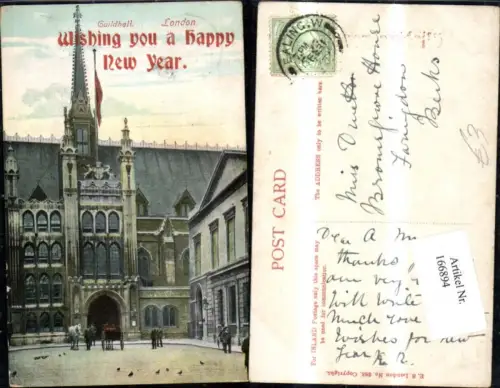 Guildhall. London.
Wishing you a Happy
New Year.
EALING. W
Miss
Bromsgrove House
Faringdon
Berks
£3
The ADDRESS only to be written here
POST CARD
For INLAND Postage only this space may
be used for communication.
Dear A
thanks
am very
will write
Much love
Wishes for new
Year
Artikel Nr.
166894
E. S. London No. Copyright.